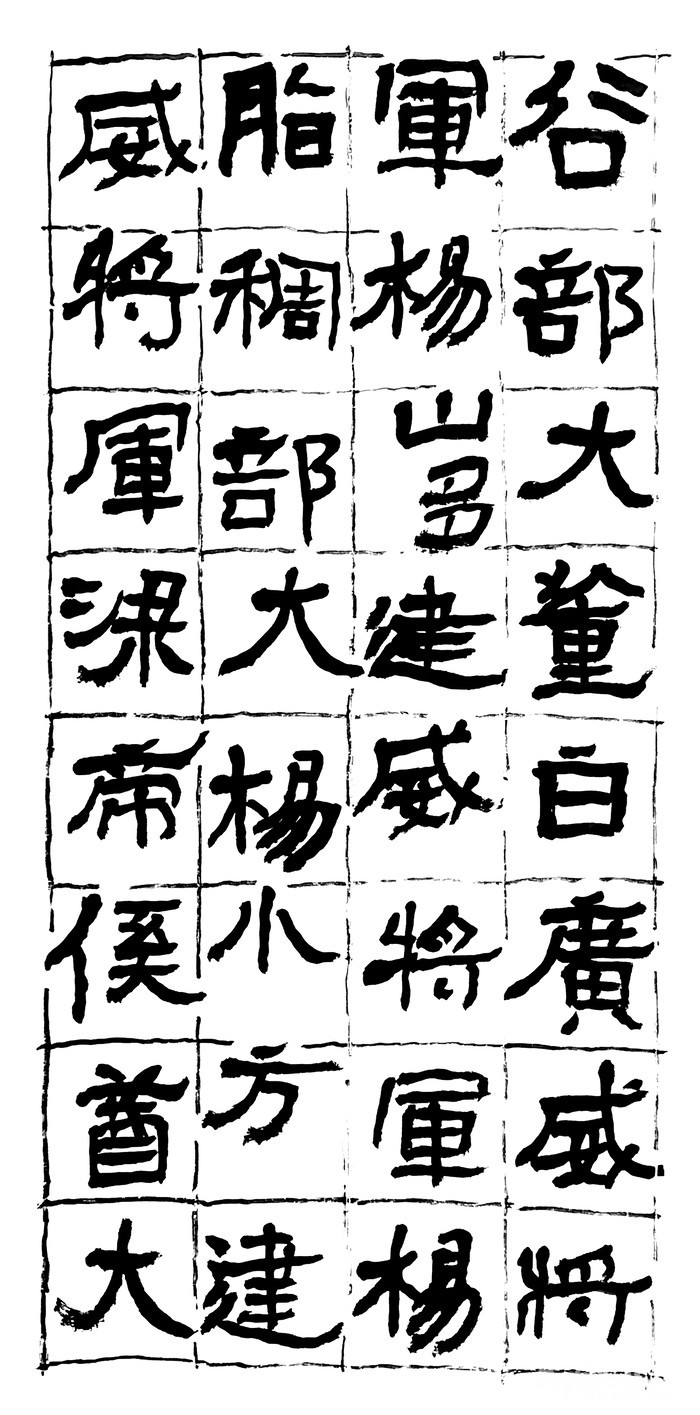 谷部大董白廣威將
軍楊建威將軍楊
脂稠部大楊小方建
威將軍梁帝侯酋大